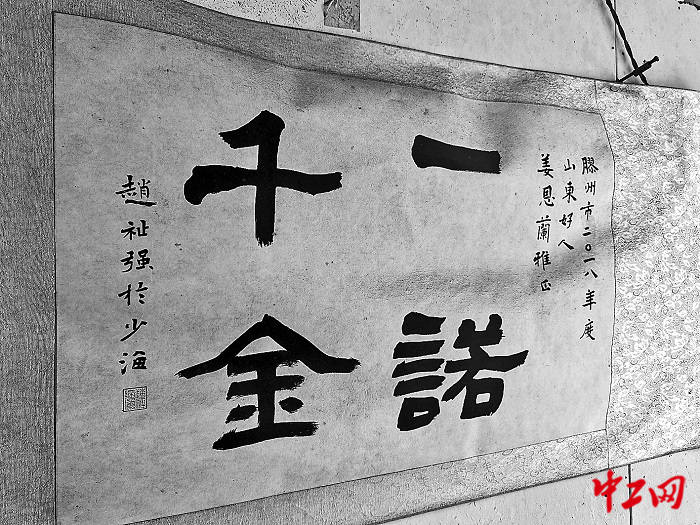 膠州市二〇一八年度
山東好人
姜恩蘭雅正
一諾
千金
趙祉强於少海
中工网